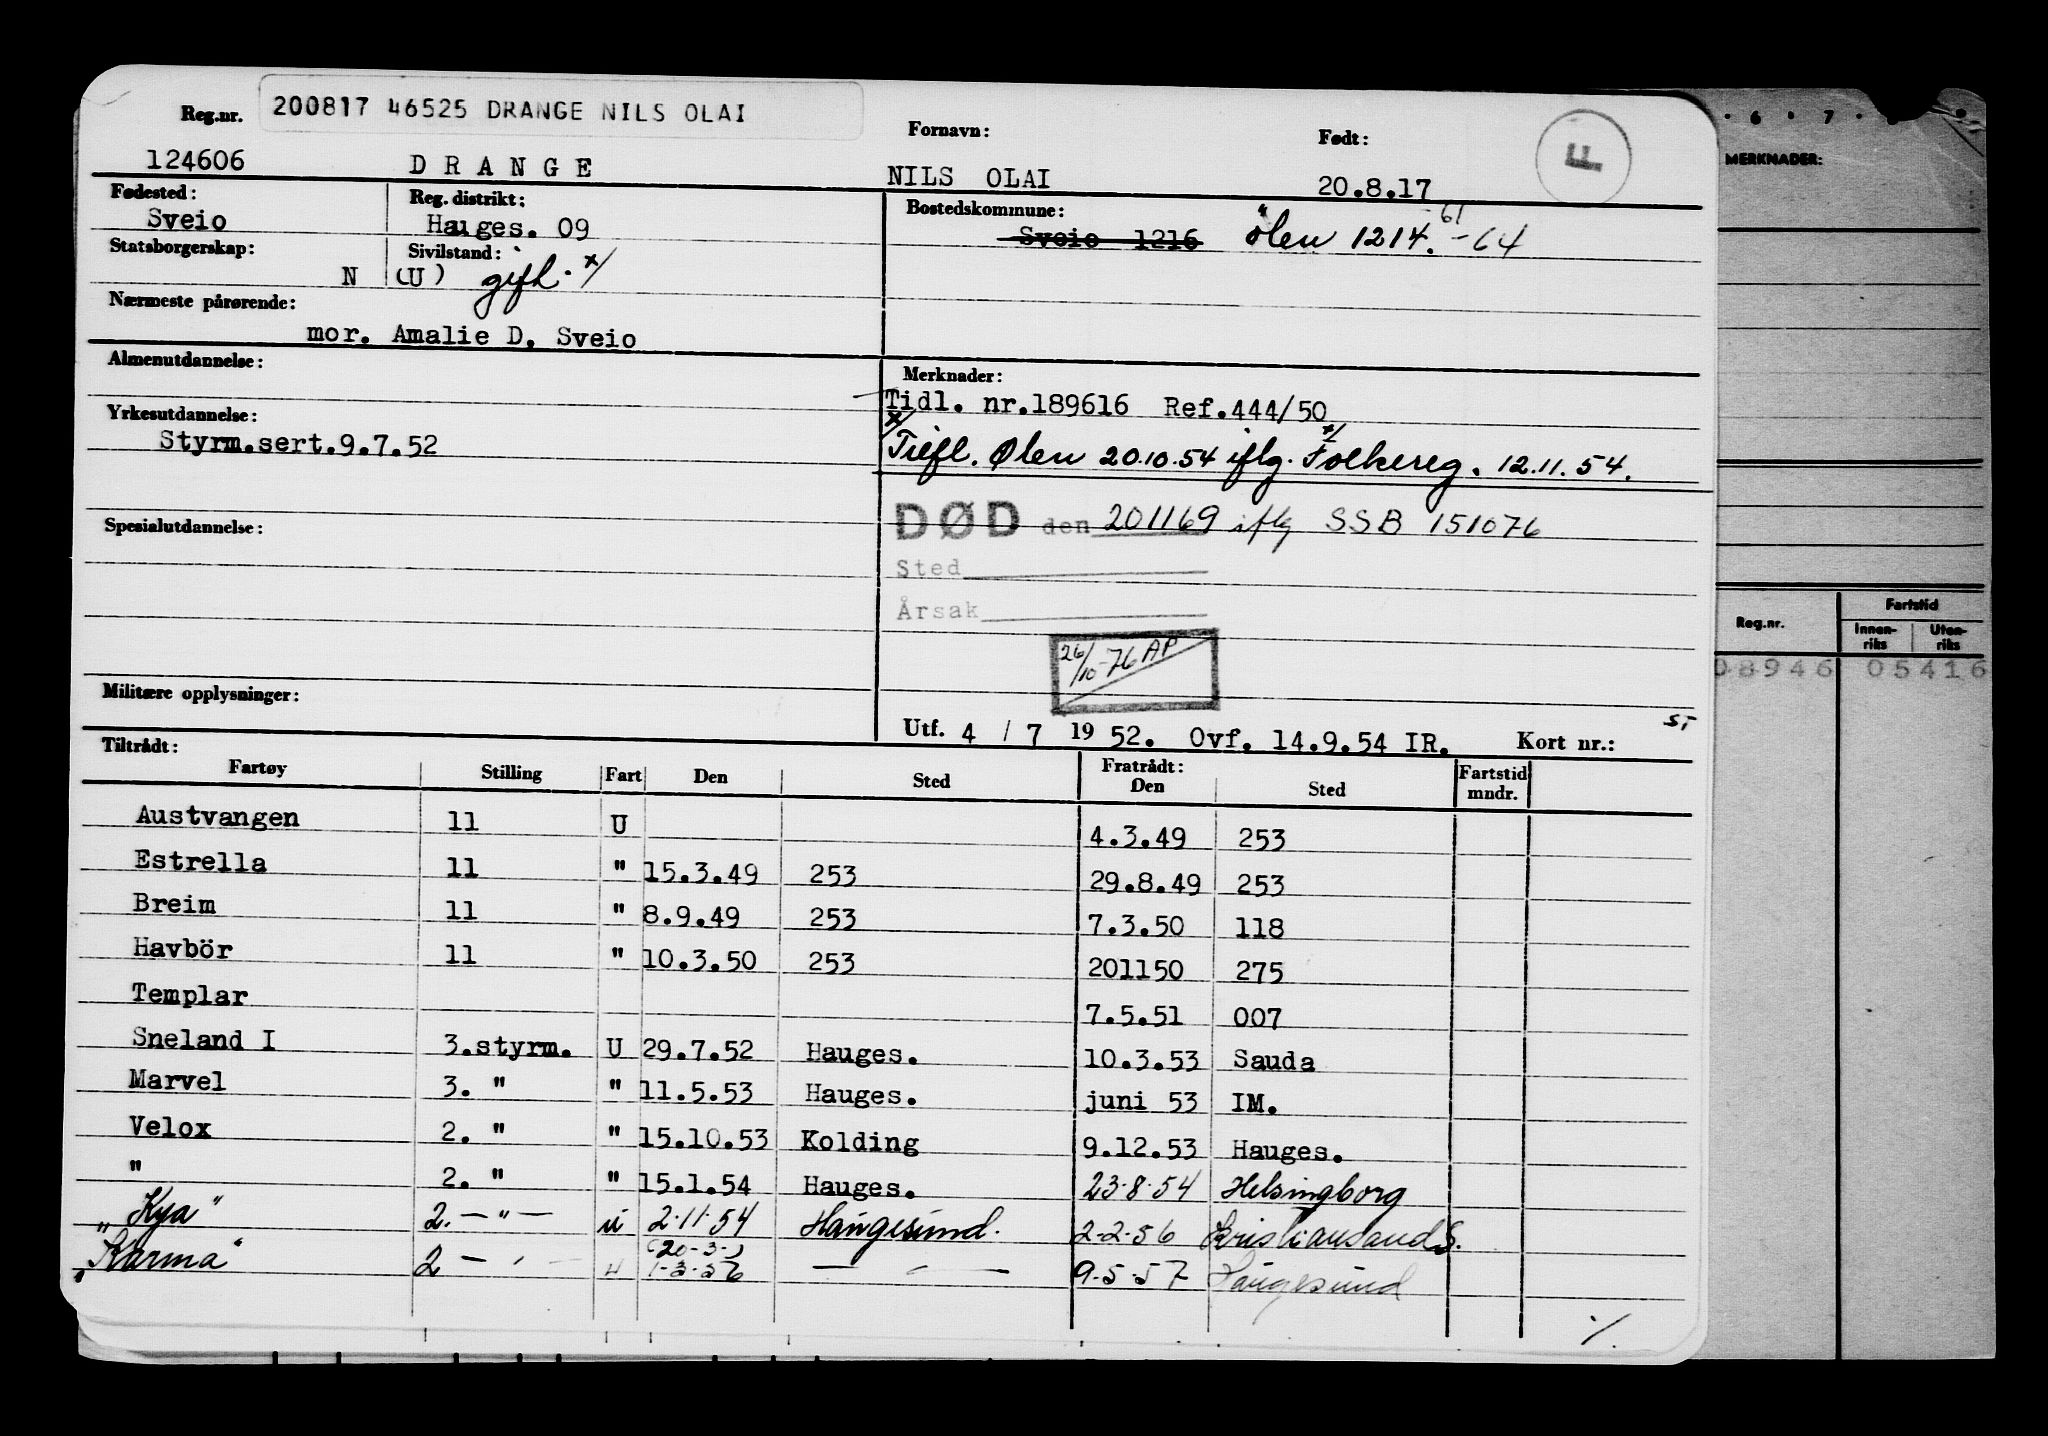 Reg.nr. 200817 46525 DRANGE NILS OLAI
Fornavn: Født: F
124606 D R A N G E NILS OLAI 20.8.17
Fødested: Reg. distrikt: Bostedskommune:
Sveio Hauges. 09 Sveio 1216 Ølen 1214. 61 -64
Statsborgerskap: Sivilstand:
N (U) gift. x/
Nærmeste pårørende:
mor. Amalie D. Sveio
Almenutdannelse: Merknader:
Tidl. nr.189616 Ref.444/50
Yrkesutdannelse:
Styrm.sert.9.7.52
x/ Tilfl. Ølen 20.10.54 iflg. Folkereg. 12.11.54.
DØD den 201169 iflg SSB 151076
Spesialutdannelse:
Sted
Årsak
26/10-76 AP
Militære opplysninger:
Utf. 4 / 7 19 52. Ovf. 14.9.54 IR. Kort nr.:
Tiltrådt: Fratrådt:
Fartøy Stilling Fart Den Sted Den Sted Fartstid mndr.
Austvangen 11 U 4.3.49 253
Estrella 11 " 15.3.49 253 29.8.49 253
Breim 11 " 8.9.49 253 7.3.50 118
Havbör 11 " 10.3.50 253 201150 275
Templar 7.5.51 007
Sneland I 3.styrm. U 29.7.52 Hauges. 10.3.53 Sauda
Marvel 3. " " 11.5.53 Hauges. juni 53 IM.
Velox 2. " " 15.10.53 Kolding 9.12.53 Hauges.
" 2. " " 15.1.54 Hauges. 23.8.54 Helsingborg
"Kya" 2. — " — u 2.11.54 Haugesund. 2-2-56 Kristiansand S.
(20-3-)
"Karma" 2 — " — 1-3-56 — " — 9.5.57 Haugesund
./.
6 7
MERKNADER:
Reg.nr. Fartstid
Innen-riks Uten-riks
08946 05416